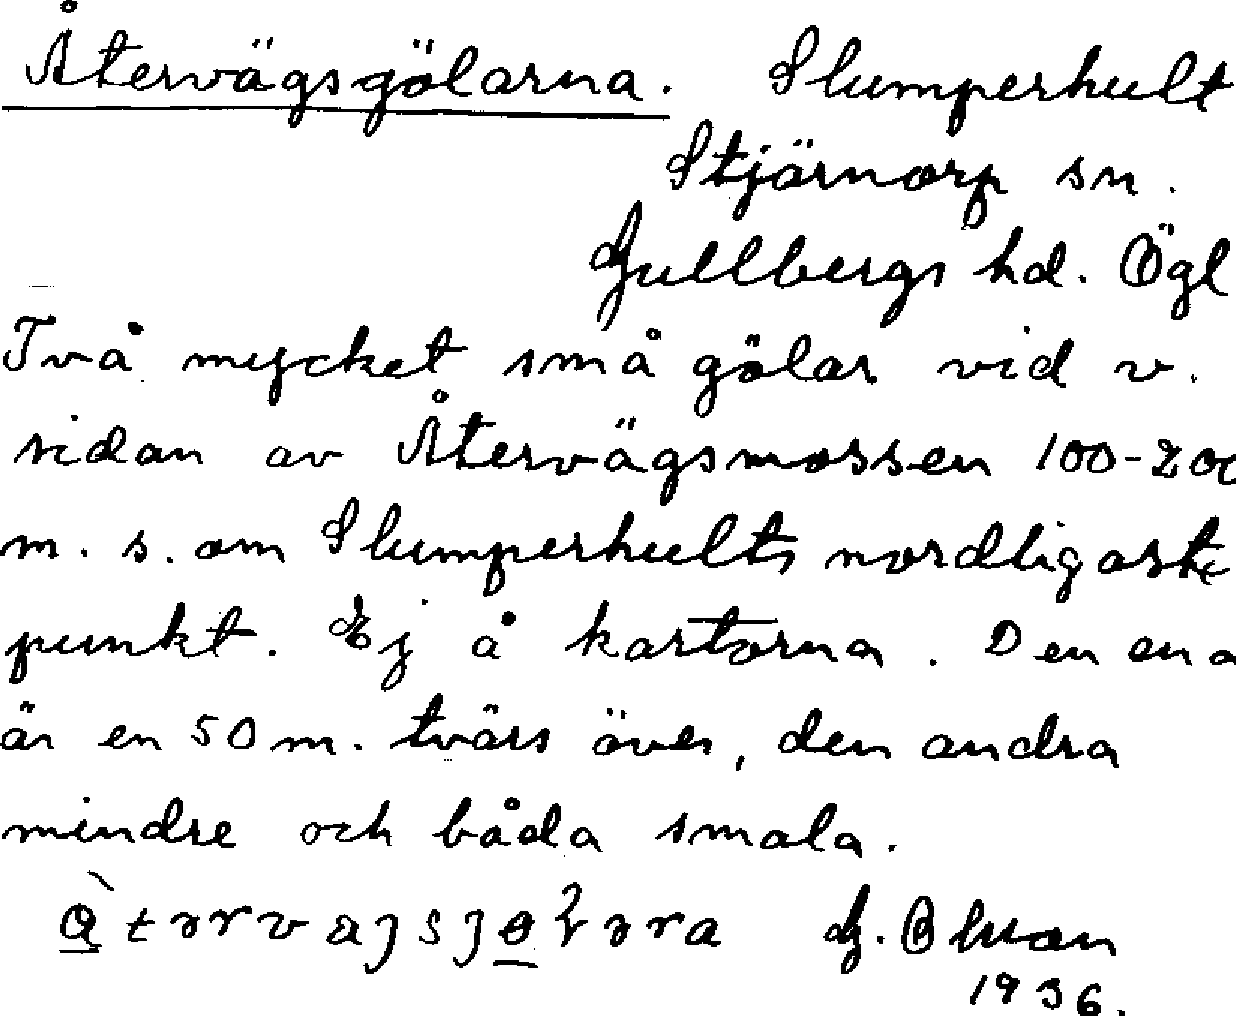 Återvägsgölarna. Slumperhult
Stjärnorp sn.
Gullbergs hd. Ögl
Två mycket små gölar vid v.
sidan av Återvägsmossen 100-200
m. s. om Slumperhults nordligaste
punkt. Ej å kartorna. Den ena
är en 50 m. tvärs över, den andra
mindre och båda smala.
1936.